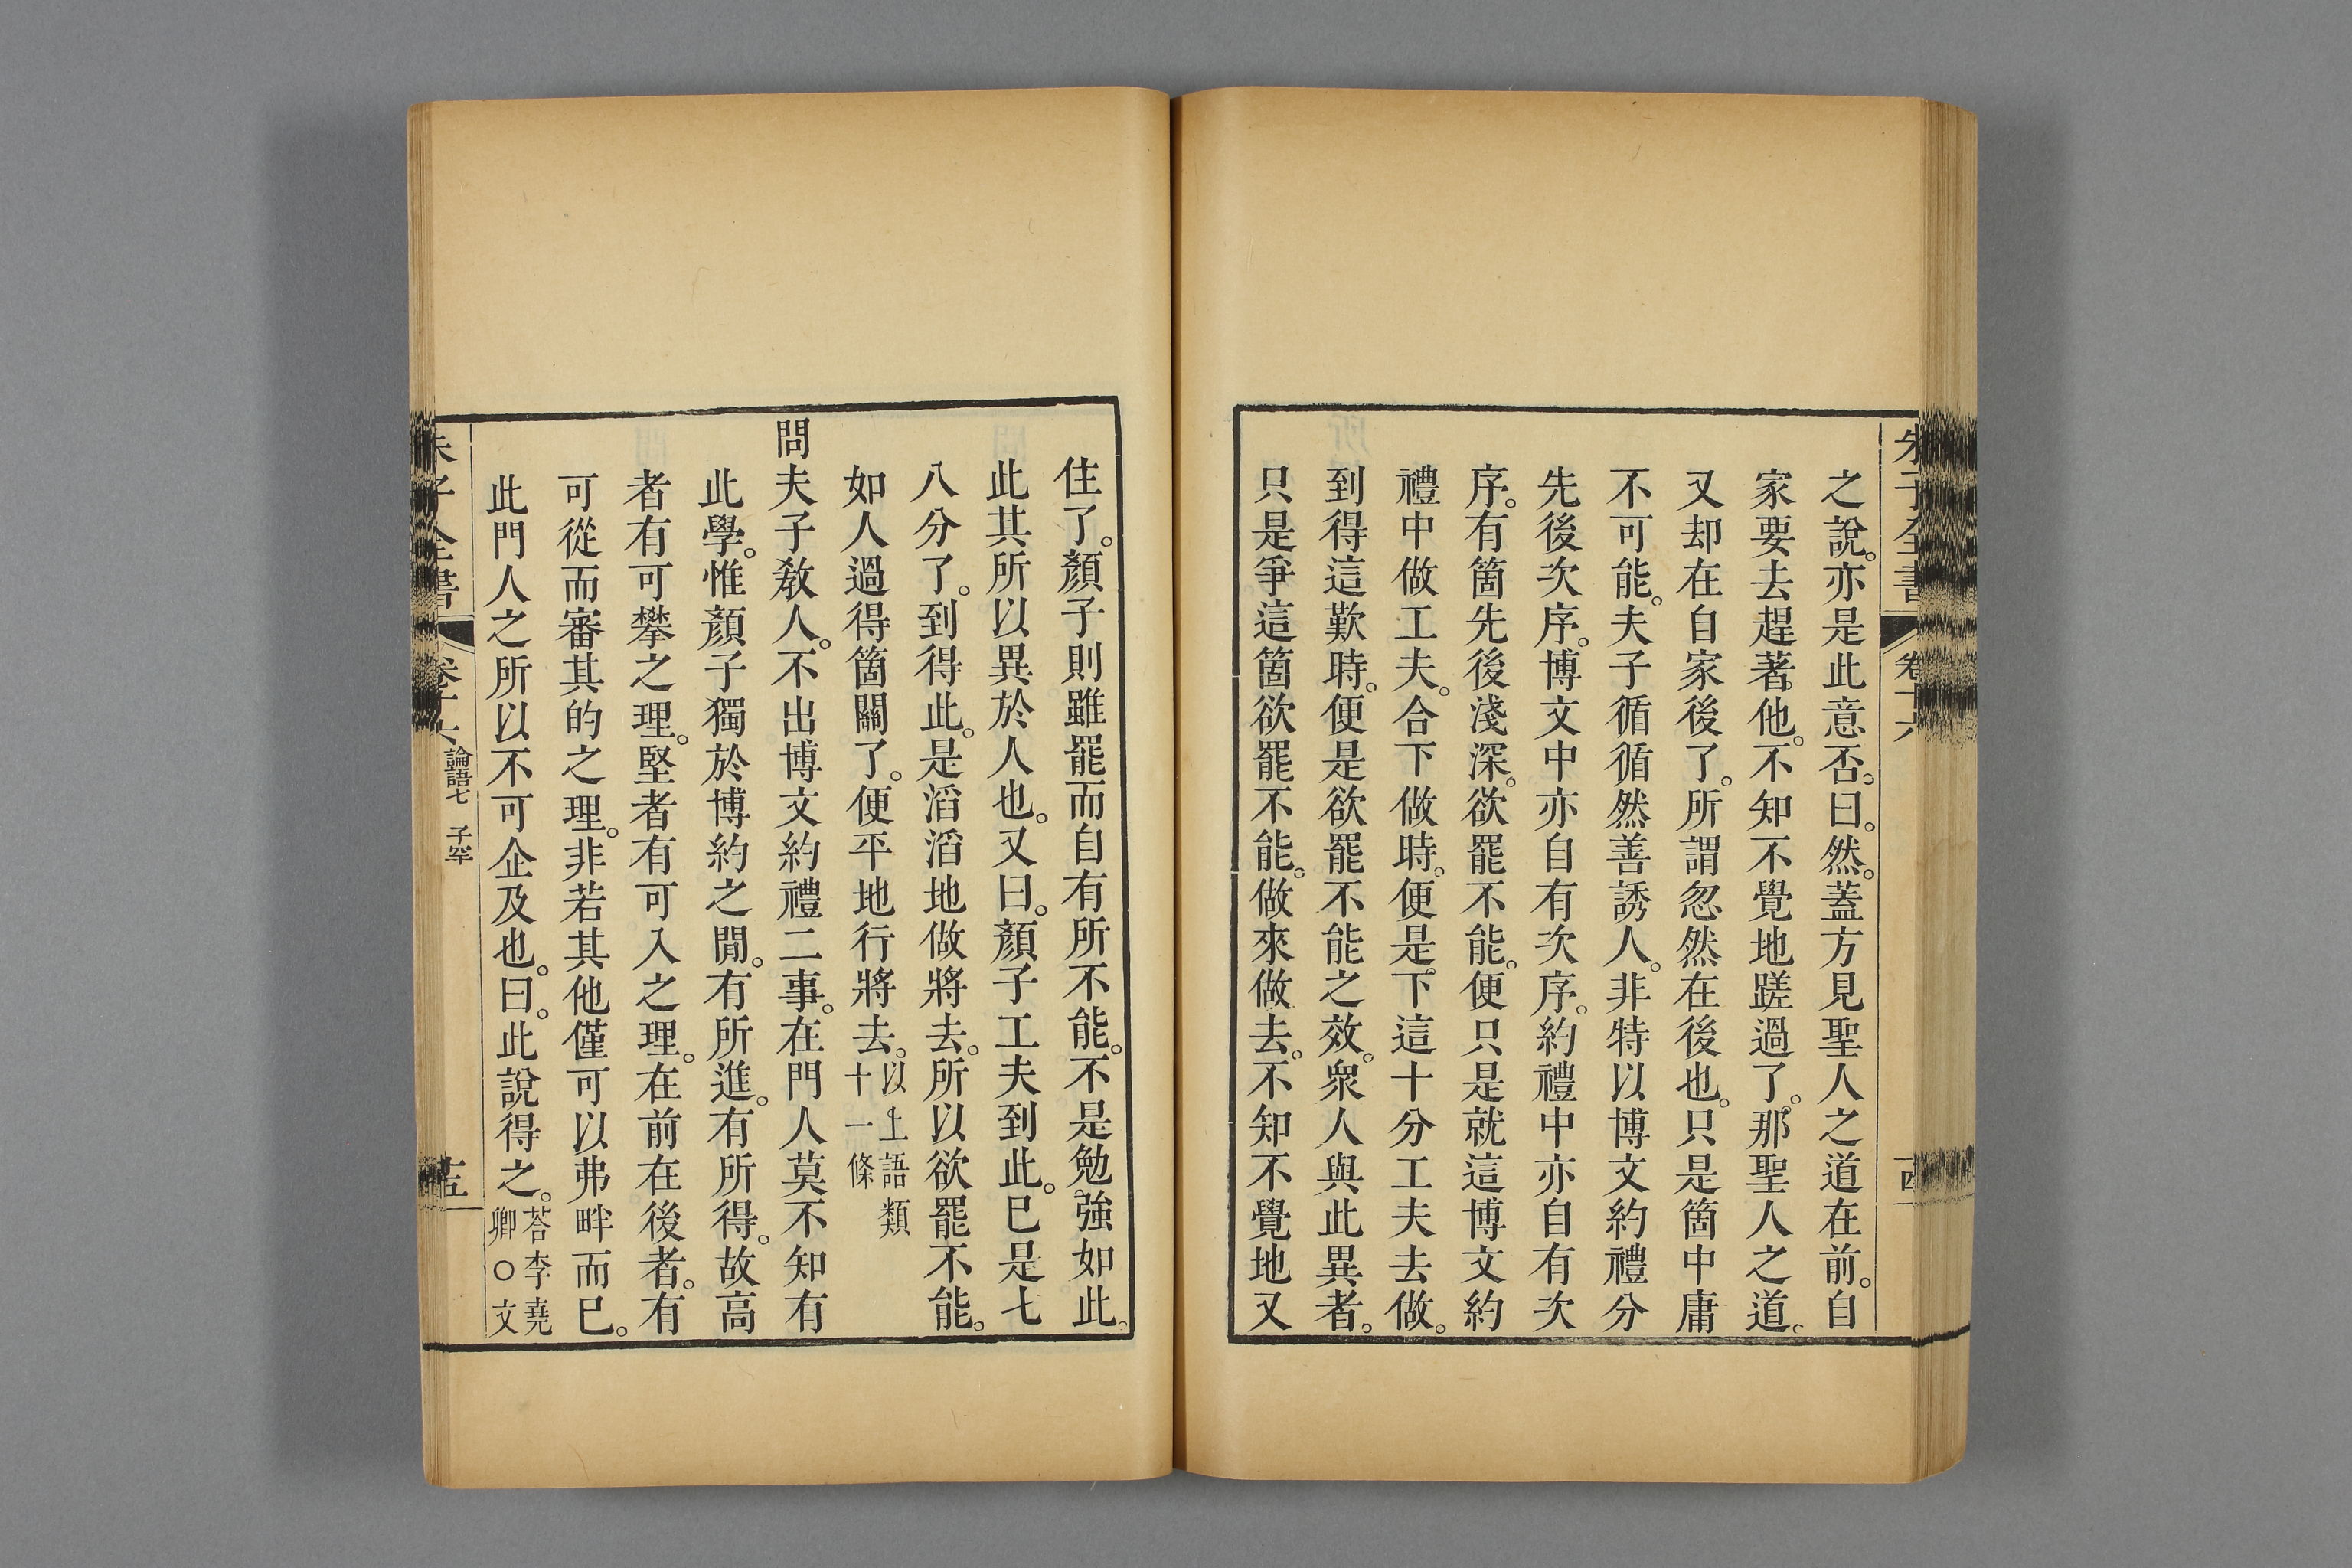 朱子全書 卷十六
之說。亦是此意否。曰。然。蓋方見聖人之道在前。自
家要去趕著他。不知不覺地蹉過了。那聖人之道。
又却在自家後了。所謂忽然在後也。只是箇中庸
不可能。夫子循循然善誘人。非特以博文約禮分
先後次序。博文中亦自有次序。約禮中亦自有次
序。有箇先後淺深。欲罷不能。便只是就這博文約
禮中做工夫。合下做時。便是下這十分工夫去做。
到得這歎時。便是欲罷不能之效。衆人與此異者。
只是爭這箇欲罷不能。做來做去。不知不覺地又
住了。顏子則雖罷而自有所不能。不是勉強如此。
此其所以異於人也。又曰。顏子工夫到此。已是七
八分了。到得此。是滔滔地做將去。所以欲罷不能。
如人過得箇關了。便平地行將去。以上語類
十一條
問夫子敎人。不出博文約禮二事。在門人莫不知有
此學。惟顏子獨於博約之閒。有所進。有所得。故高
者有可攀之理。堅者有可入之理。在前在後者。有
可從而審其的之理。非若其他僅可以弗畔而已。
此門人之所以不可企及也。曰。此說得之。荅李堯
卿○文
朱子全書 卷十六 論語七 子罕 十五